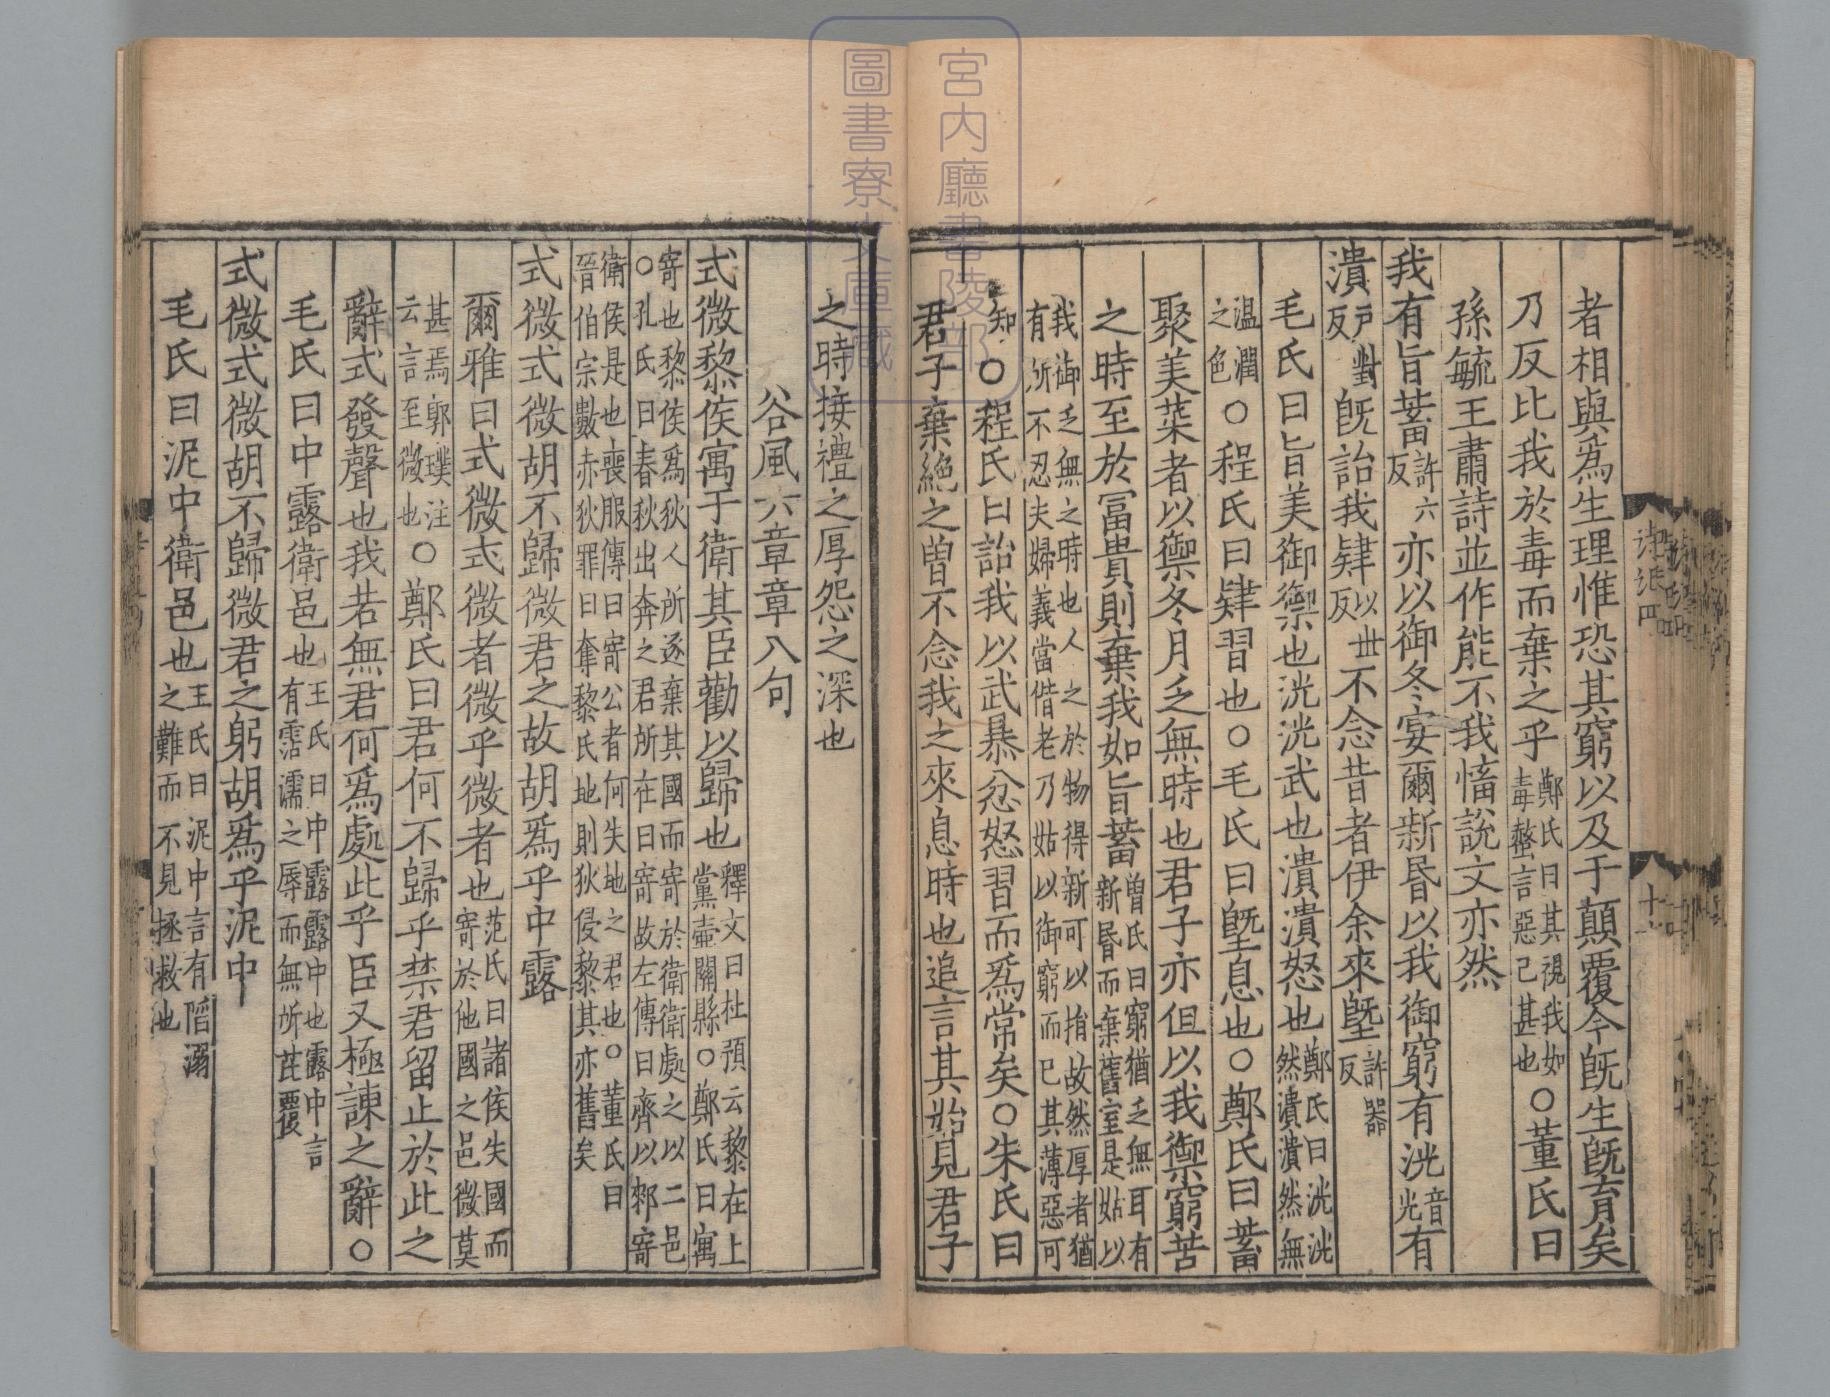 者相與爲生理惟恐其窮以及于顛覆今旣生旣育矣
乃反比我於毒而棄之乎鄭氏曰其視我如毒螫言惡已甚也○董氏曰
孫毓王肅詩並作能不我慉說文亦然
我有旨蓄許六反亦以御冬宴爾新昏以我御窮有洸音光有
潰戶對反旣詒我肄以世反不念昔者伊余來墍許器反
毛氏曰旨美御禦也洸洸武也潰潰怒也鄭氏曰洸洸然潰潰然無
温潤之色○程氏曰肄習也○毛氏曰墍息也○鄭氏曰蓄
聚美菜者以禦冬月乏無時也君子亦但以我禦窮苦
之時至於富貴則棄我如旨蓄曾氏曰窮猶乏無耳有新昏而棄舊室是姑以
我御乏無之時也人之於物得新可以捐故然厚者猶有所不忍夫婦義當偕老乃姑以御窮而已其薄惡可
知○程氏曰詒我以武暴忿怒習而爲常矣○朱氏曰
君子棄絶之曾不念我之來息時也追言其始見君子
之時接禮之厚怨之深也
谷風六章章八句
式微黎侯寓于衛其臣勸以歸也釋文曰杜預云黎在上黨壺關縣○鄭氏曰寓
寄也黎侯爲狄人所逐棄其國而寄於衛衛處之以二邑○孔氏曰春秋出奔之君所在曰寄故左傳曰齊以郲寄
衛侯是也喪服傳曰寄公者何失地之君也○董氏曰晉伯宗數赤狄罪曰奪黎氏地則狄侵黎其亦舊矣
式微式微胡不歸微君之故胡爲乎中露
爾雅曰式微式微者微乎微者也范氏曰諸侯失國而寄於他國之邑微莫
甚焉郭璞注云言至微也○鄭氏曰君何不歸乎禁君留止於此之
辭式發聲也我若無君何爲處此乎臣又極諫之辭○
毛氏曰中露衛邑也王氏曰中露露中也露中言有霑濡之辱而無所芘覆
式微式微胡不歸微君之躬胡爲乎泥中
毛氏曰泥中衛邑也王氏曰泥中言有䧟溺之難而不見拯救也
宮內廳書陵部
圖書寮文庫藏